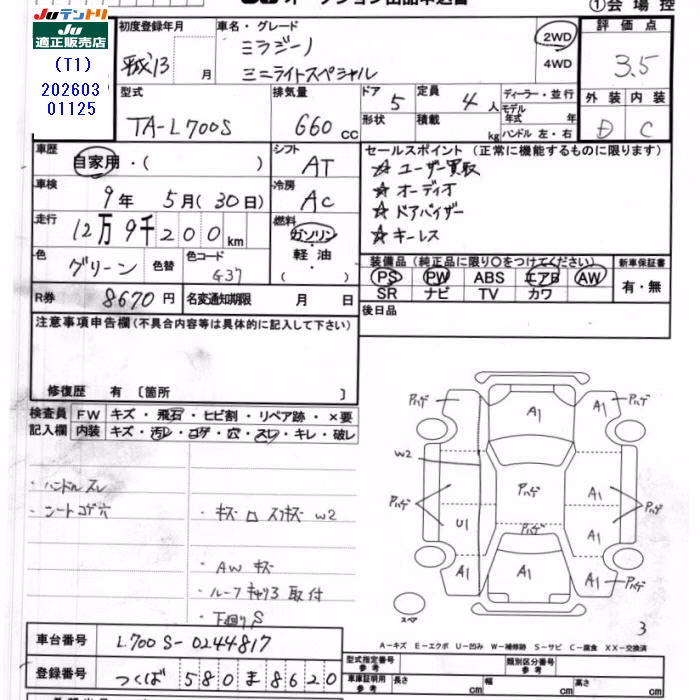 Juテントリ
Ju
適正販売店
(T1)
202603
01125
①会場控
初度登録年月
平成13 月
車名・グレード
ミラジーノ
ミニライトスペシャル
2WD
4WD
評価点
3.5
外装 内装
D C
型式
TA-L700S
排気量
660 cc
ドア 5
形状
定員 4 人
積載 kg
ディーラー・並行
モデル
年式 年
ハンドル 左・右
車歴
自家用・( )
シフト
AT
車検
9年 5月(30日)
冷房
AC
走行
12万9千200km
燃料
ガソリン・
軽油・
( )
色
グリーン
色替
色コード
G37
R券 8670円
名変通知期限 月 日
セールスポイント (正常に機能するものに限ります)
☆ ユーザー買取
☆ オーディオ
☆ ドアバイザー
☆ キーレス
装備品(純正品に限り○をつけてください)
PS PW ABS エアB AW
SR ナビ TV カワ
新車保証書
有・無
後日品
注意事項申告欄(不具合内容等は具体的に記入して下さい)
修復歴 有 〔箇所 〕
検査員
記入欄
FW キズ・飛石・ヒビ割・リペア跡・×要
内装 キズ・汚レ・コゲ・穴・スレ・キレ・破レ
・ハンドルスレ
・シートコゲ穴
・キズ ロ スリキズ W2
・AW キズ
・ルーフキャリア取付
・下廻りS
Pハゲ
A1
A1
Pハゲ
W2
Pハゲ
Pハゲ
A1
Pハゲ
U1
Pハゲ
A1
A1
A1
A1
Pハゲ
スペア
3
A-キズ E-エクボ U-凹み W-補修跡 S-サビ C-腐食 XX-交換済
車台番号 L700S-0244817
登録番号 つくば 580 ま 8620
型式指定番号
参考
類別区分番号
参考
車庫証明用
参考
長さ cm
幅 cm
高さ cm